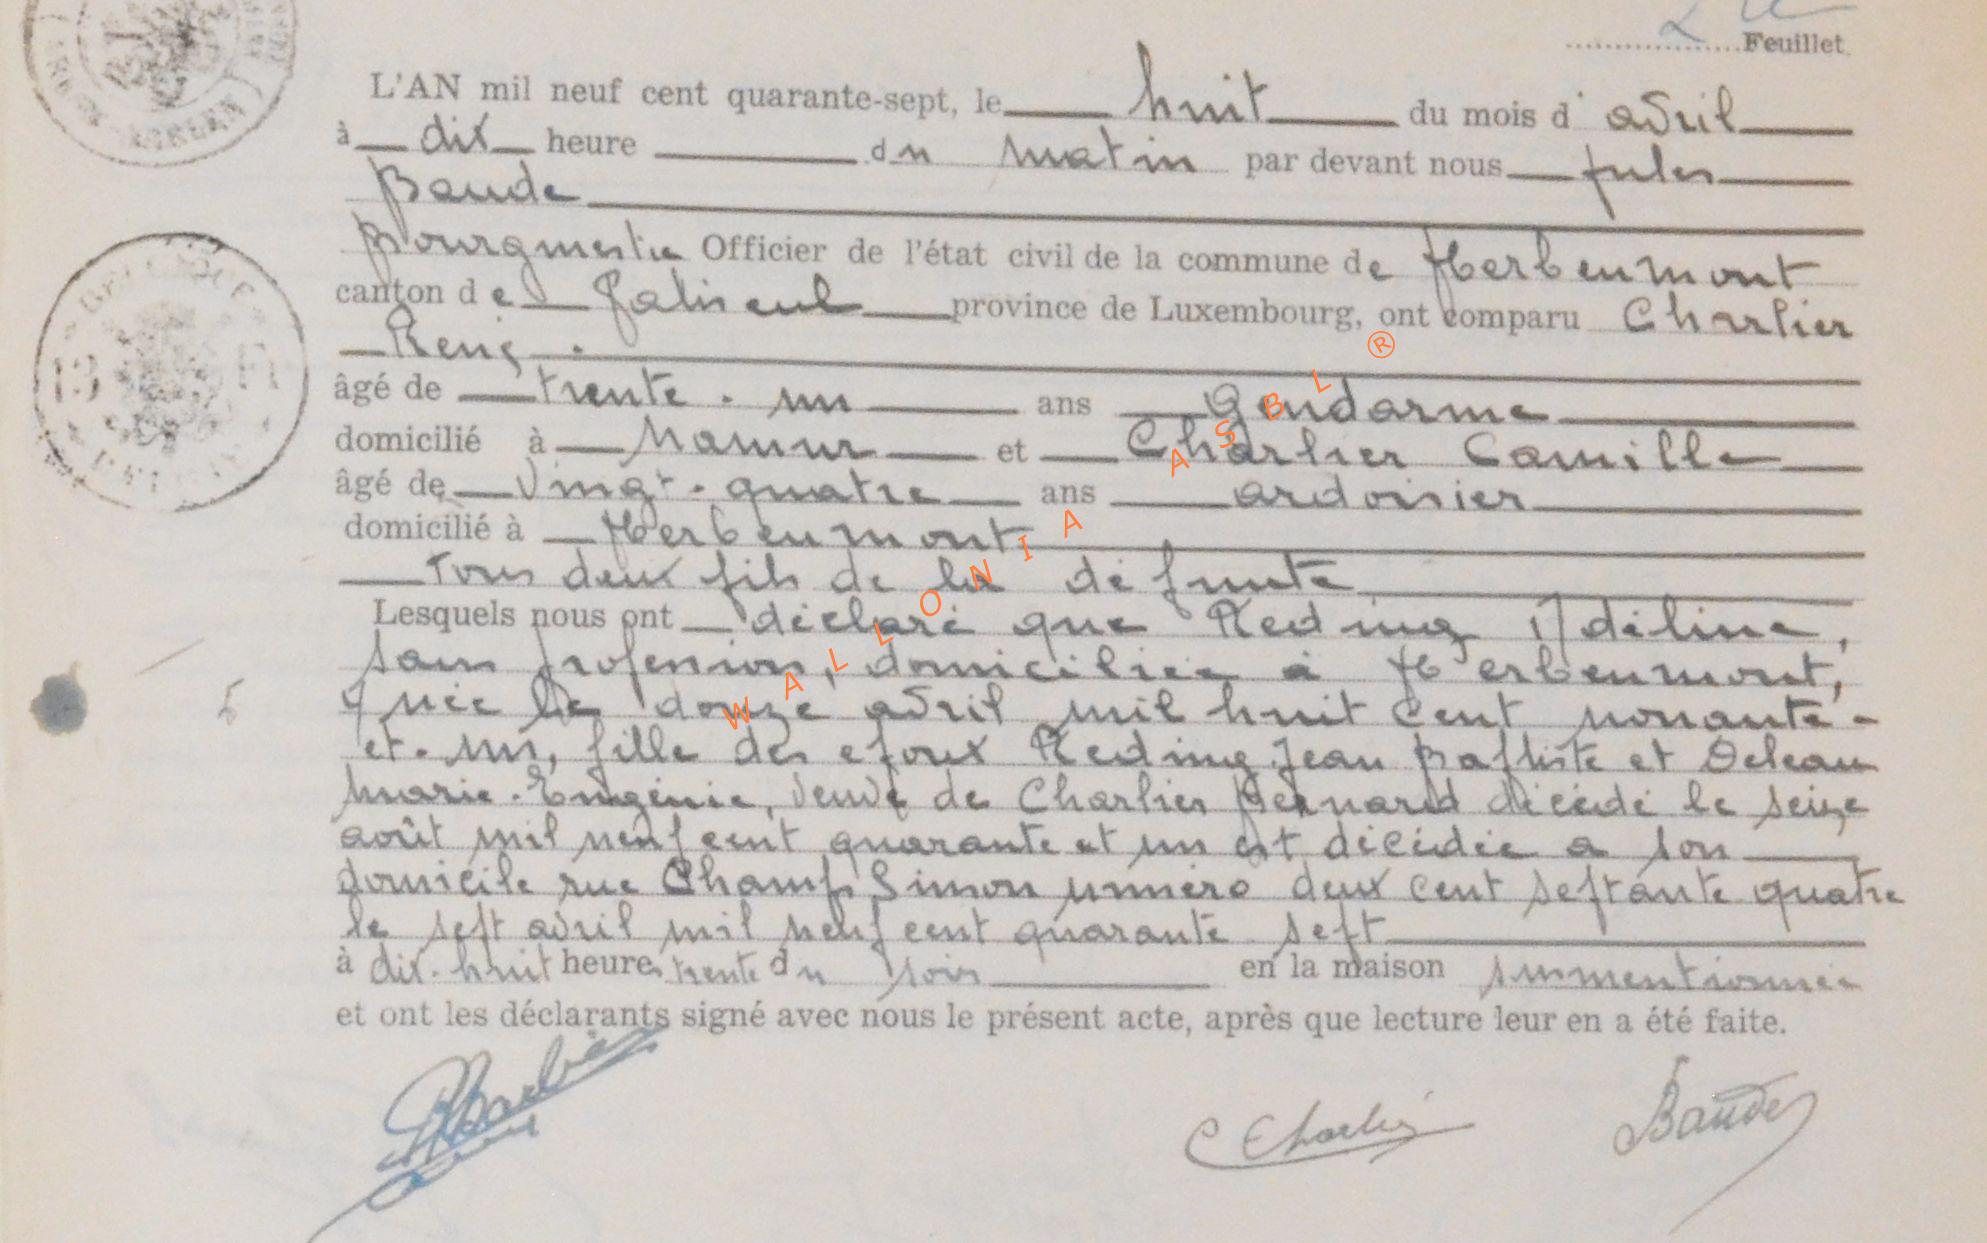 2e
Feuillet
L'AN mil neuf cent quarante-sept, le huit du mois d'avril
à dix heure du matin par devant nous Jules
Baude
Bourgmestre Officier de l'état civil de la commune de Herbeumont
canton de Paliseul province de Luxembourg, ont comparu Charlier
René
âgé de trente-un ans Gendarme
domicilié à Namur et Charlier Camille
âgé de Vingt-quatre ans ardoisier
domicilié à Herbeumont
Tous deux fils de la défunte
Lesquels nous ont déclaré que Reding Adéline,
sans profession, domiciliée à Herbeumont,
y née le douze avril mil huit cent nonante-
et-un, fille des epoux Reding Jean Baptiste et Deleau
Marie-Eugénie, Veuve de Charlier Bernard décédé le seize
août mil neuf cent quarante et un est décédée a son
domicile rue Champ Simon numéro deux cent septante quatre
le sept avril mil neuf cent quarante sept
à dix-huit heures trente du soir en la maison susmentionnée
et ont les déclarants signé avec nous le présent acte, après que lecture leur en a été faite.
C Charlier
Baude
WALLONIA ASBL ®